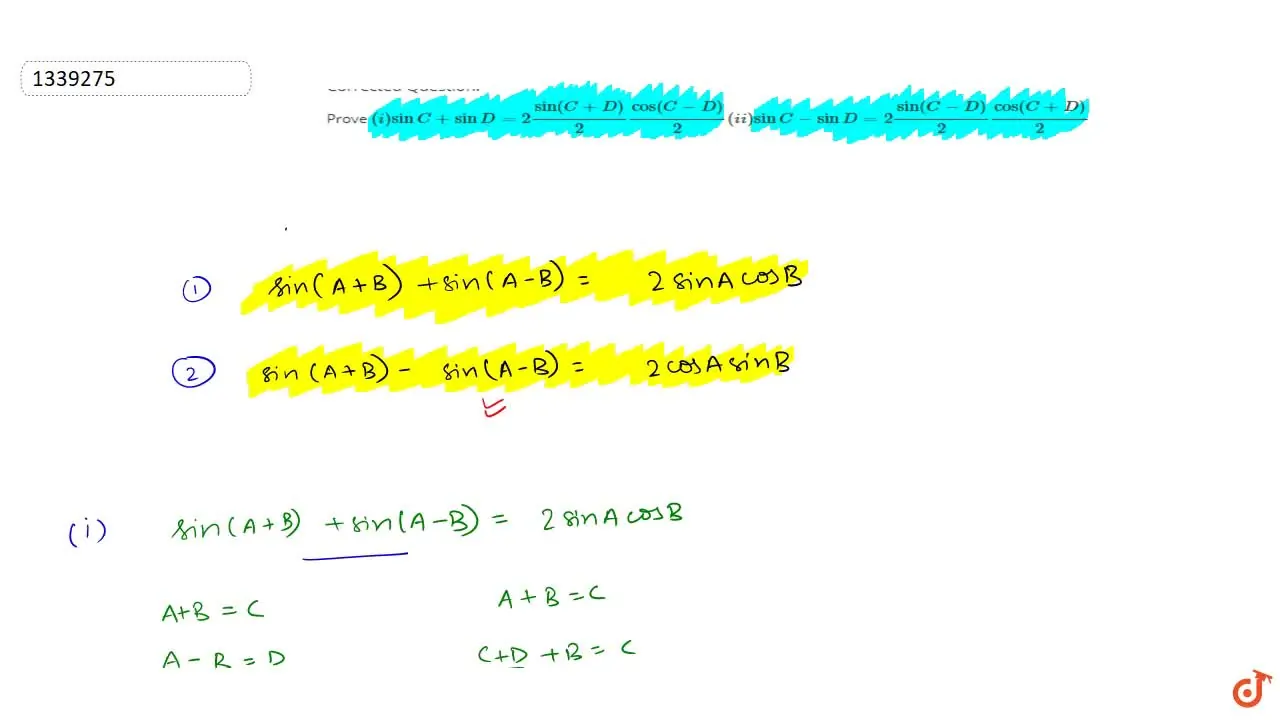 1339275
Corrected Question:
Prove (i) sin C + sin D = 2 sin(C + D)/2 cos(C − D)/2 (ii) sin C − sin D = 2 sin(C − D)/2 cos(C + D)/2
① sin(A+B) + sin(A−B) = 2 sinA cosB
② sin(A+B) − sin(A−B) = 2 cosA sinB
(i) sin(A+B) + sin(A−B) = 2 sinA cosB
A+B = C A+B = C
A−B = D C+D + B = C